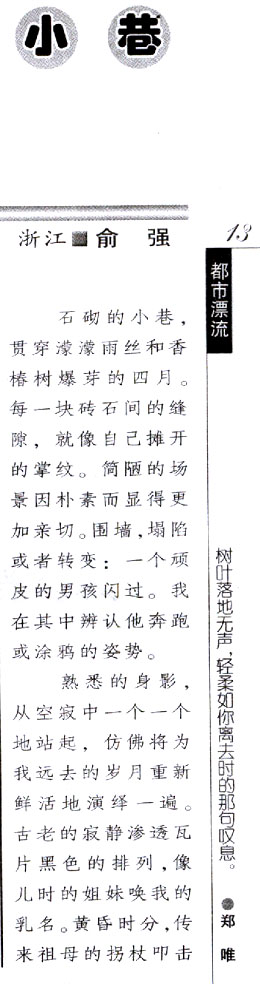 小巷
浙江■俞 强
石砌的小巷，
贯穿濛濛雨丝和香
椿树爆芽的四月。
每一块砖石间的缝
隙，就像自己摊开
的掌纹。简陋的场
景因朴素而显得更
加亲切。围墙，塌陷
或者转变：一个顽
皮的男孩闪过。我
在其中辨认他奔跑
或涂鸦的姿势。
熟悉的身影，
从空寂中一个一个
地站起，仿佛将为
我远去的岁月重新
鲜活地演绎一遍。
古老的寂静渗透瓦
片黑色的排列，像
儿时的姐妹唤我的
乳名。黄昏时分，传
来祖母的拐杖叩击
13
都市漂流
树叶落地无声，轻柔如你离去时的那句叹息。
●郑 唯